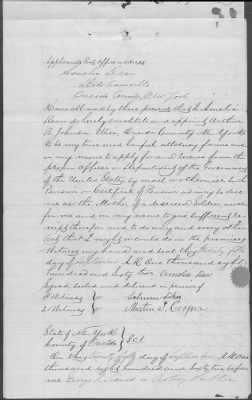 Applicants Post Office address
Amelia Dean
Oneida County New York
Know all men by these presents that I Amelia
Dean do hereby constitute and appoint Arthur
B. Johnson Utica Oneida County New York
to be my true and lawful attorney for me and
in my name to apply for and receive from the
proper Officer or Department of the Government
of the United States
Pension or Certificate of Pension as may be due
me as the Mother of a deceased Soldier and
for me and in my name to give sufficient re-
ceipt therefor and to do any and every other
act that I might or could do in the premises
Witness my hand and seal this twenty fifth
day of September A.D. One thousand eight
hundred and sixty two Amelia Dean
Signed sealed and delivered in presence of
1st Witness
2d Witness Martin S. Cooper
State of New York
County of Oneida SS.
On this twenty fifth day of September A.D. One
thousand eight hundred and sixty two before
me a Notary Public